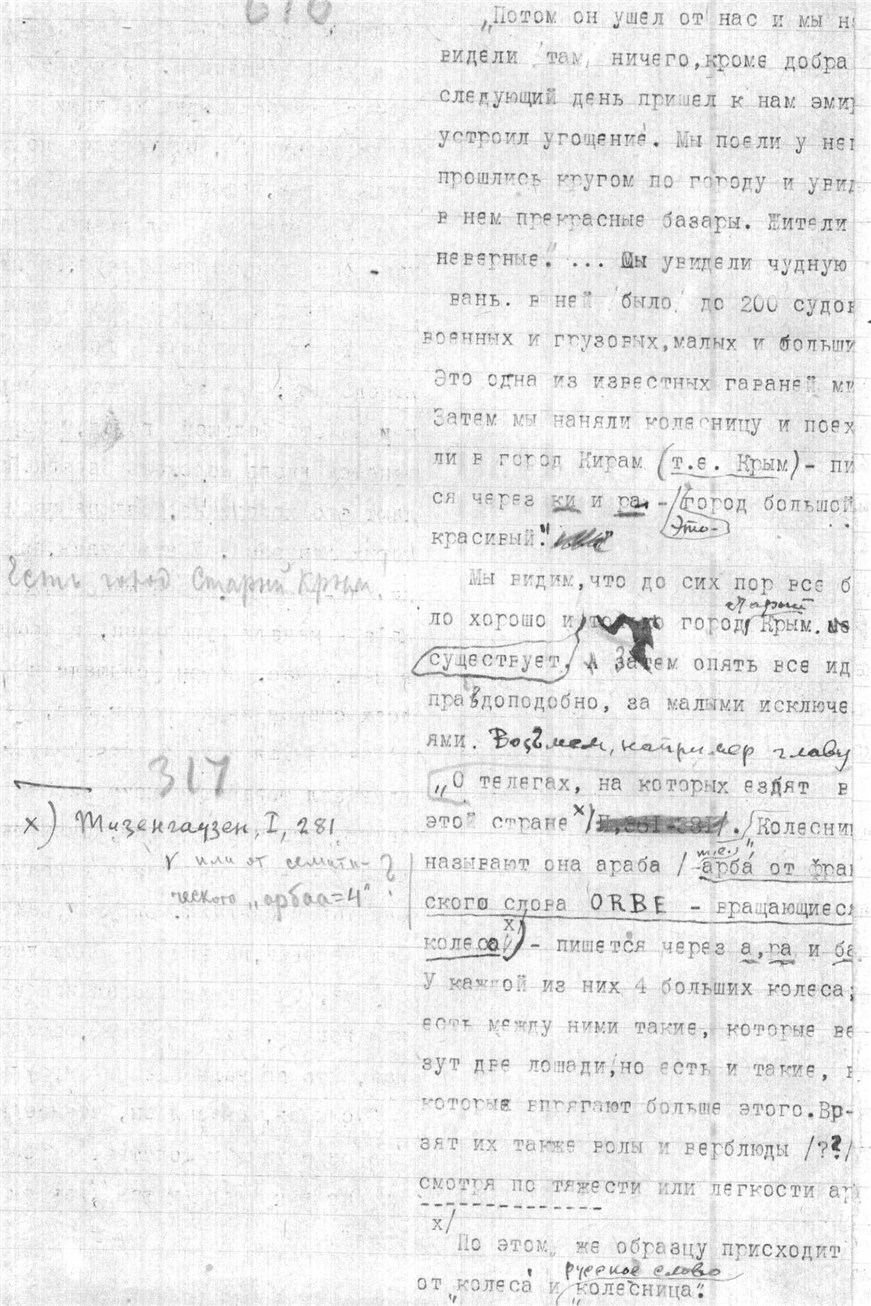 616
„Потом он ушел от нас и мы н
видели там, ничего,кроме добра
следующий день пришел к нам эми
устроил угощение. Мы поели у не
прошлись кругом по городу и увид
в нем прекрасные базары. Жители
неверные." ... Мы увидели чудную
вань. в ней было до 200 судов
военных и грузовых,малых и больши
Это одна из известных гаваней ми
Затем мы наняли колесницу и поех
ли в город Кирам (т.е. Крым)- пи
ся через ки и ра -/город большой
Это-
красивый."
Мы видим,что до сих пор все б
Есть город Старый Крым.
старый
ло хорошо и только город Крым. не
существует, А затем опять все ид
правдоподобно, за малыми исключе
ями. Возьмем, например главу
317
„О телегах, на которых ездят в
этой стране х)/ . /Колесни
х) Тизенгаузен, I, 281
т.е.
называют она араба / арба от фра
или от семити-
ческого „арбаа=4" ?
ского слова ORBE - вращающиеся
колеса х/) - пишется через а,ра и ба
У каждой из них 4 больших колеса;
есть между ними такие, которые ве
зут две лошади,но есть и такие, в
которые впрягают больше этого.Вр-
зят их также волы и верблюды /??/
смотря по тяжести или легкости ар
х/
По этому же образцу присходит
русское слово
от „колеса и „колесница".